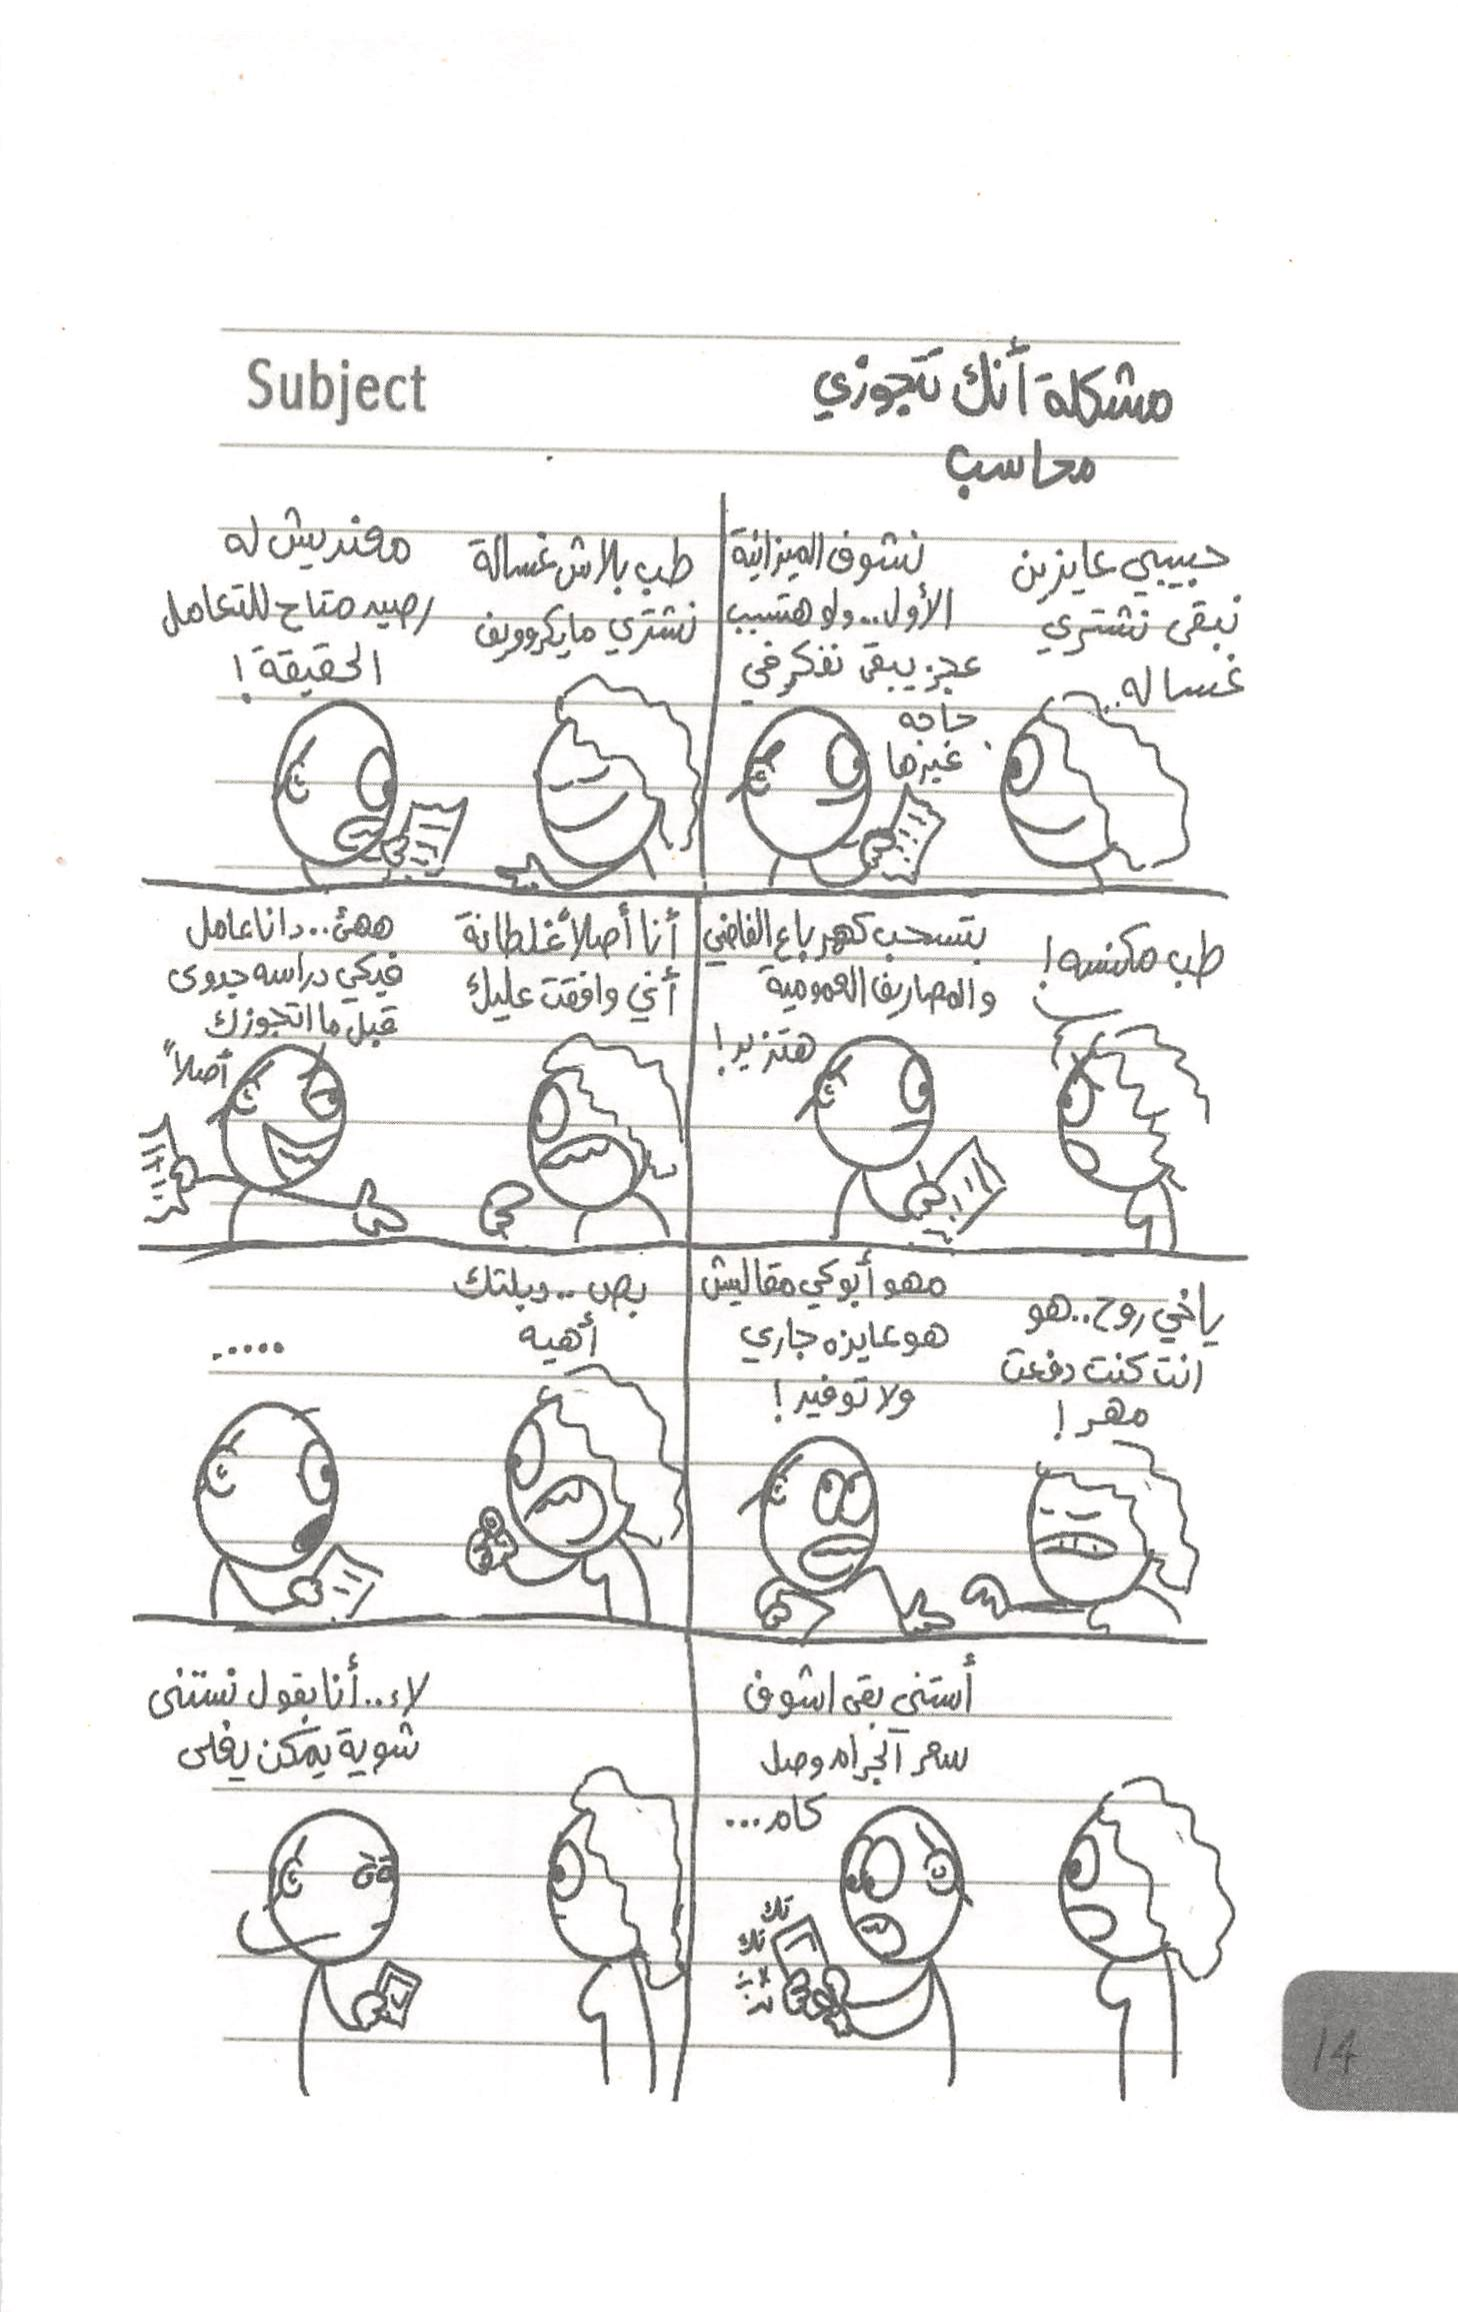 Subject
مشكلة أنك تتجوزي
محاسب
حبيبي عايزين
نبقى نشتري
غساله..
نشوف الميزانية
الأول.. ولو هتسبب
عجز يبقى نفكر في
حاجه
غيرها
طب بلاش غسالة
نشتري مايكروويف
معنديش له
رصيد متاح للتعامل
الحقيقة!
طب مكنسه!
بتسحب كهرباء ع الفاضي
والمصاريف العمومية
هتزيد!
أنا أصلاً غلطانة
أني وافقت عليك
ههئ.. دانا عامل
فيكي دراسه جدوى
قبل ما اتجوزك
أصلاً
ياخي روح.. هو
انت كنت دفعت
مهر!
مهو أبوكي مقاليش
هو عايزه جاري
ولا توفير!
بص.. دبلتك
أهيه
.....
أستني بقى اشوف
سعر الجرام وصل
كام...
تك
تك
تك
لاء.. أنا بقول نستنى
شوية يمكن يغلى
14